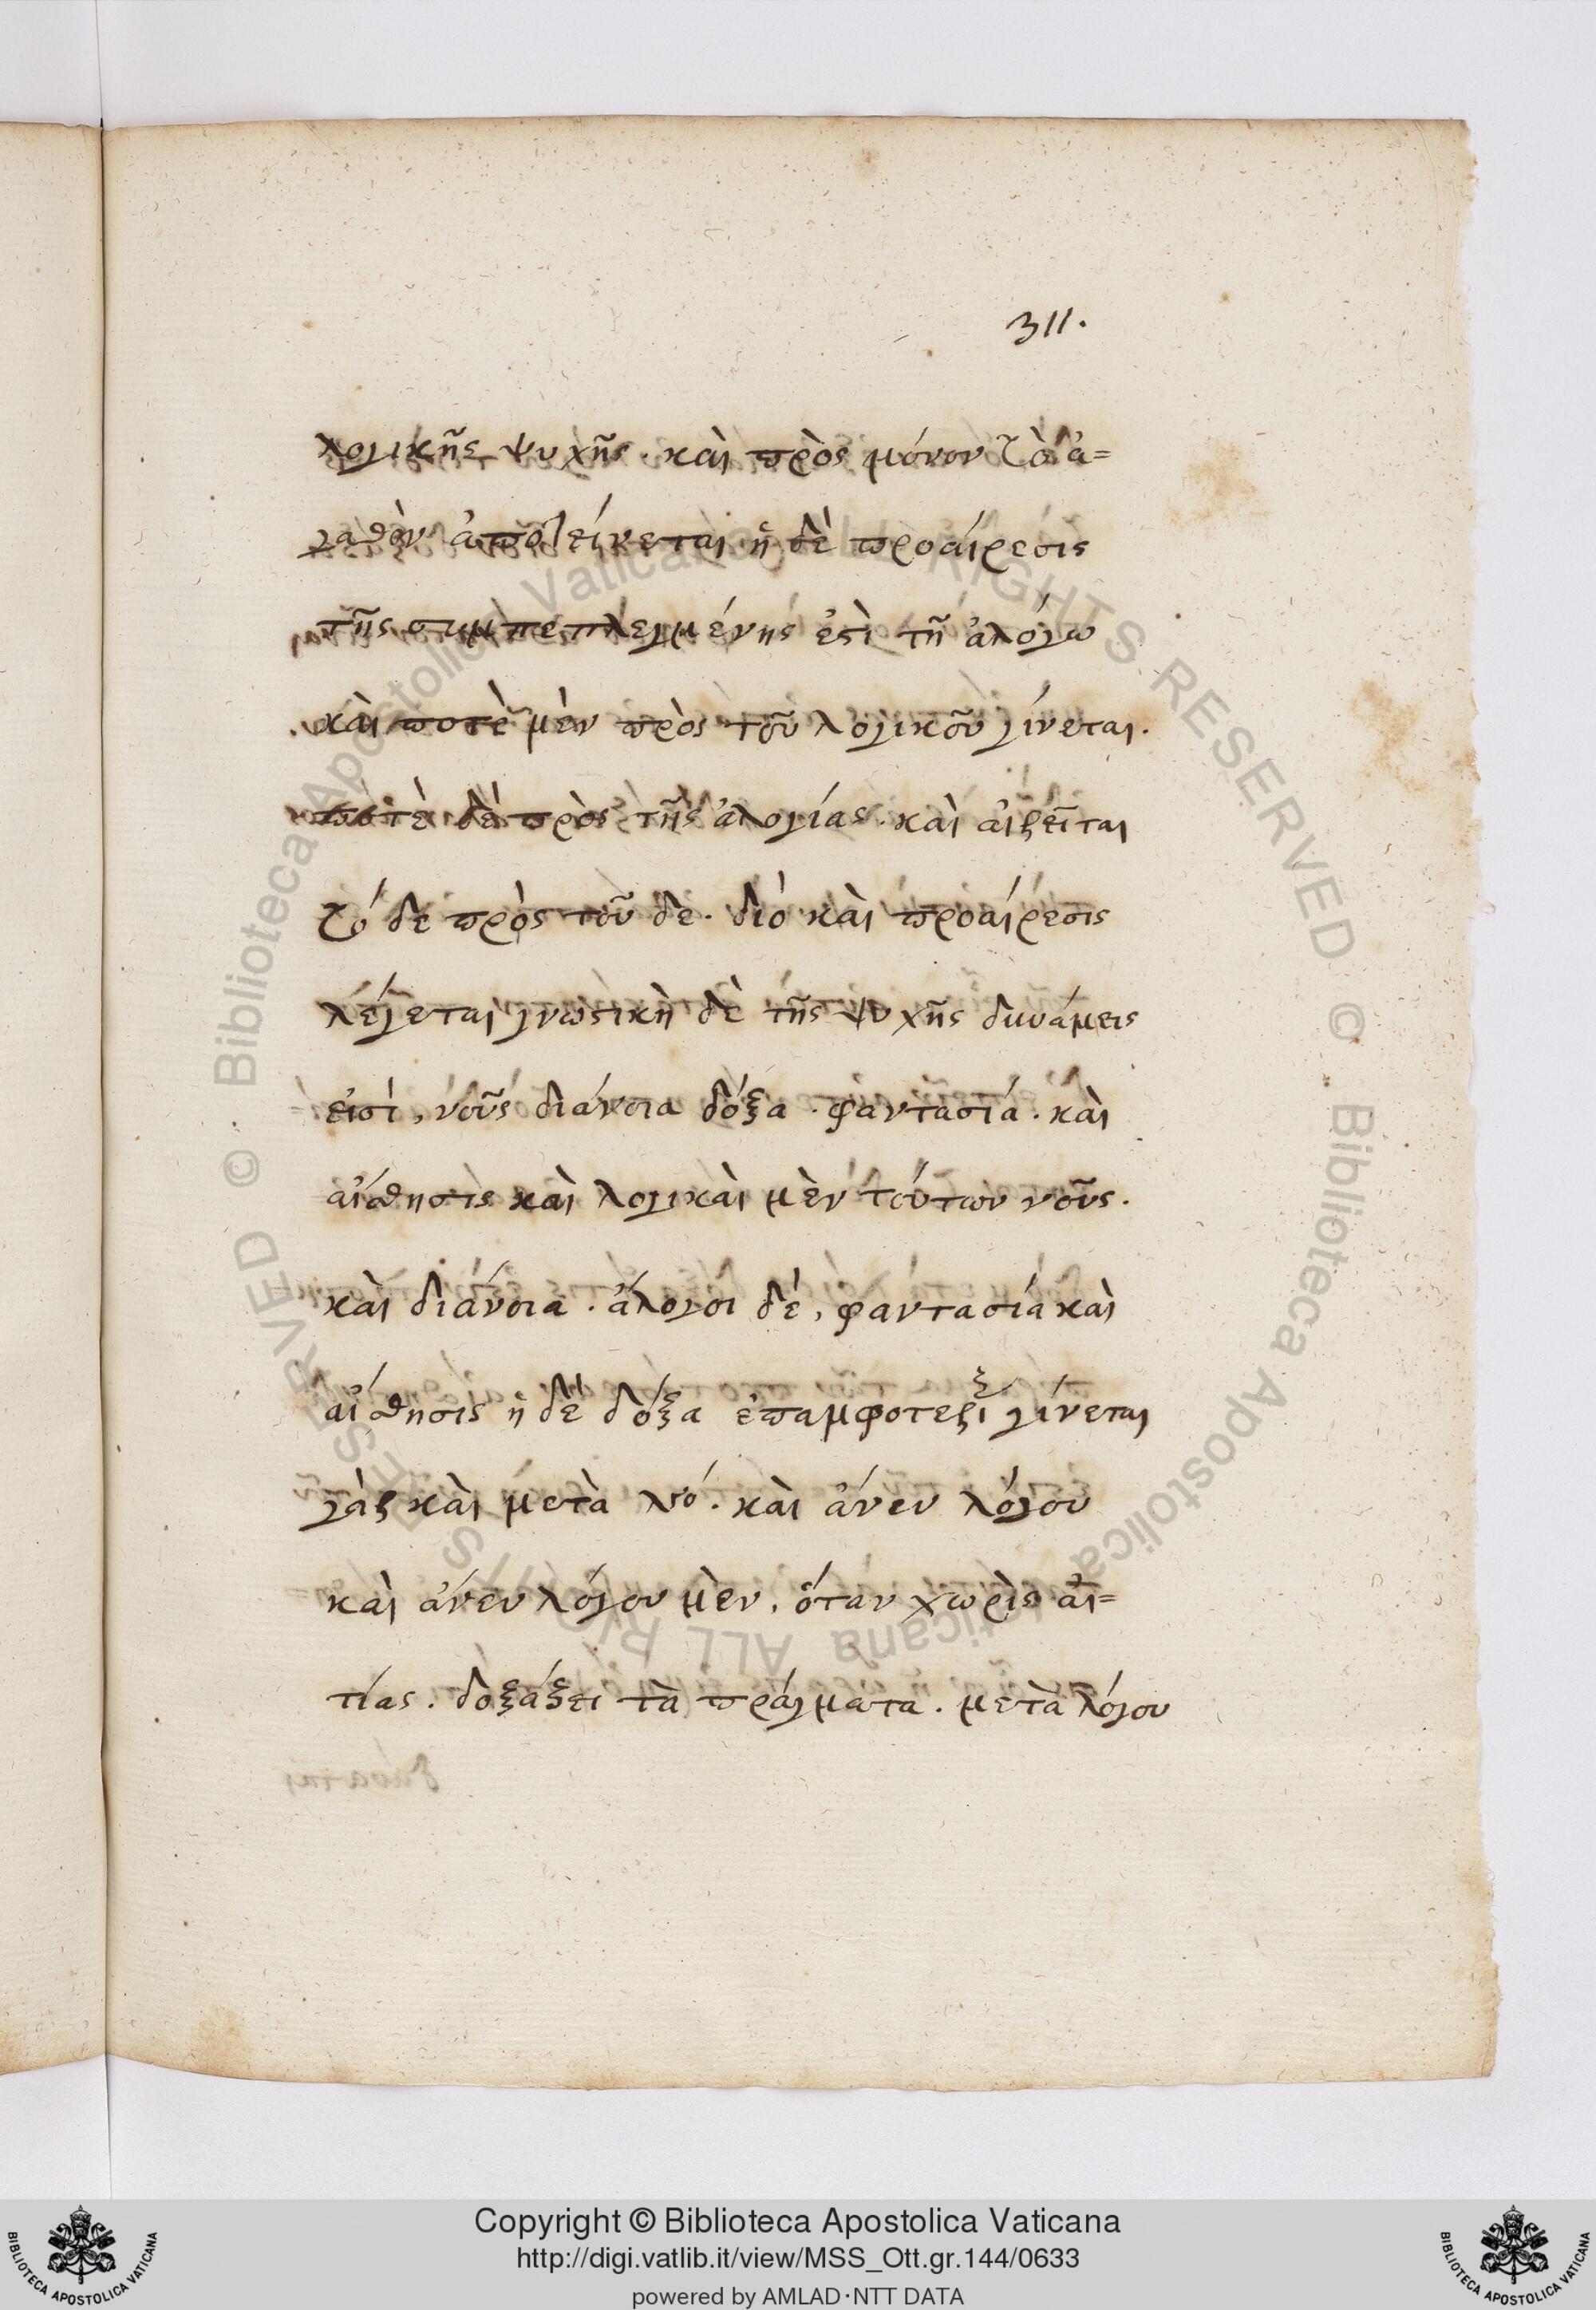 311.
λογικῆς ψυχῆς. καὶ πρὸς μόνον τὸ ἀ=
γαθὸν ἀποτείνεται ἡ δὲ προαίρεσις
τῆς συμπεπλεγμένης ἐστὶ τῇ ἀλόγω
καὶ ποτὲ μὲν πρὸς τοῦ λογικοῦ γίνεται.
ποτὲ δὲ πρὸς τῆς ἀλογίας. καὶ αἱρεῖται
τό δε πρὸς τοῦ δε. διό καὶ προαίρεσις
λέγεται γνωστικὴ δὲ τῆς ψυχῆς δυνάμεις
εἰσί, νοῦς διάνοια δόξα. φαντασία. καὶ
αἴσθησις καὶ λογικαὶ μὲν τούτων νοῦς.
καὶ διάνοια. άλογοι δέ, φαντασία καὶ
αἴσθησις ἡ δὲ δόξα ἐπαμφοτερίζει γίνεται
γὰρ καὶ μετὰ λό. καὶ ἄνευ λόγου
καὶ ἄνευ λόγου μὲν, ὅταν χωρὶς αἰ=
τίας. δοξάζει τὰ πράγματα. μετὰ λόγου
© Biblioteca Apostolica Vaticana ALL RIGHTS RESERVED
© Biblioteca Apostolica Vaticana ALL RIGHTS RESERVED
Copyright © Biblioteca Apostolica Vaticana
http://digi.vatlib.it/view/MSS_Ott.gr.144/0633
powered by AMLAD·NTT DATA
BIBLIOTECA APOSTOLICA VATICANA
BIBLIOTECA APOSTOLICA VATICANA